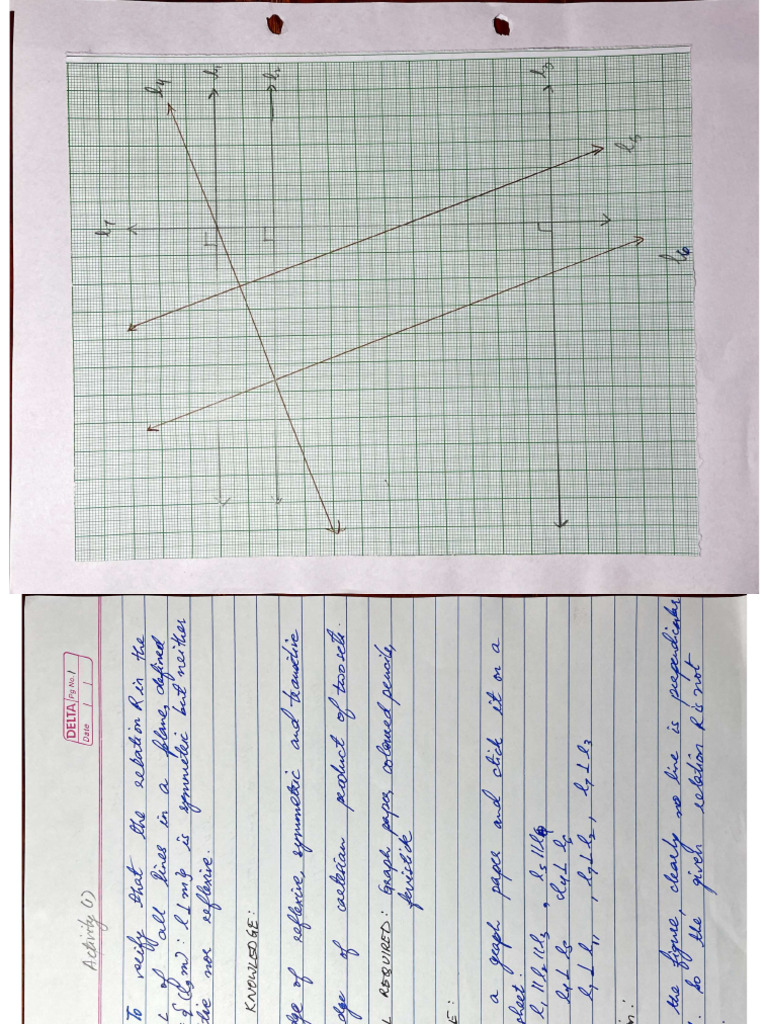 l4
l1
l2
l3
l5
l7
l6
Activity (1)
DELTA Pg No. 1
Date
To verify that the relation R in the
of all lines in a plane, defined
{(l, m) : l ⊥ m} is symmetric but neither
nor reflexive.
KNOWLEDGE:
of reflexive, symmetric and transitive
of cartesian product of two sets.
REQUIRED: Graph paper, coloured pencils,
fevistick
a graph paper and stick it on a
sheet.
l1 || l2 || l3 , l5 || l6
l4 ⊥ l5 l4 ⊥ l6
l7 ⊥ l1, l7 ⊥ l2, l7 ⊥ l3
the figure, clearly no line is perpendicular
So the given relation R is not